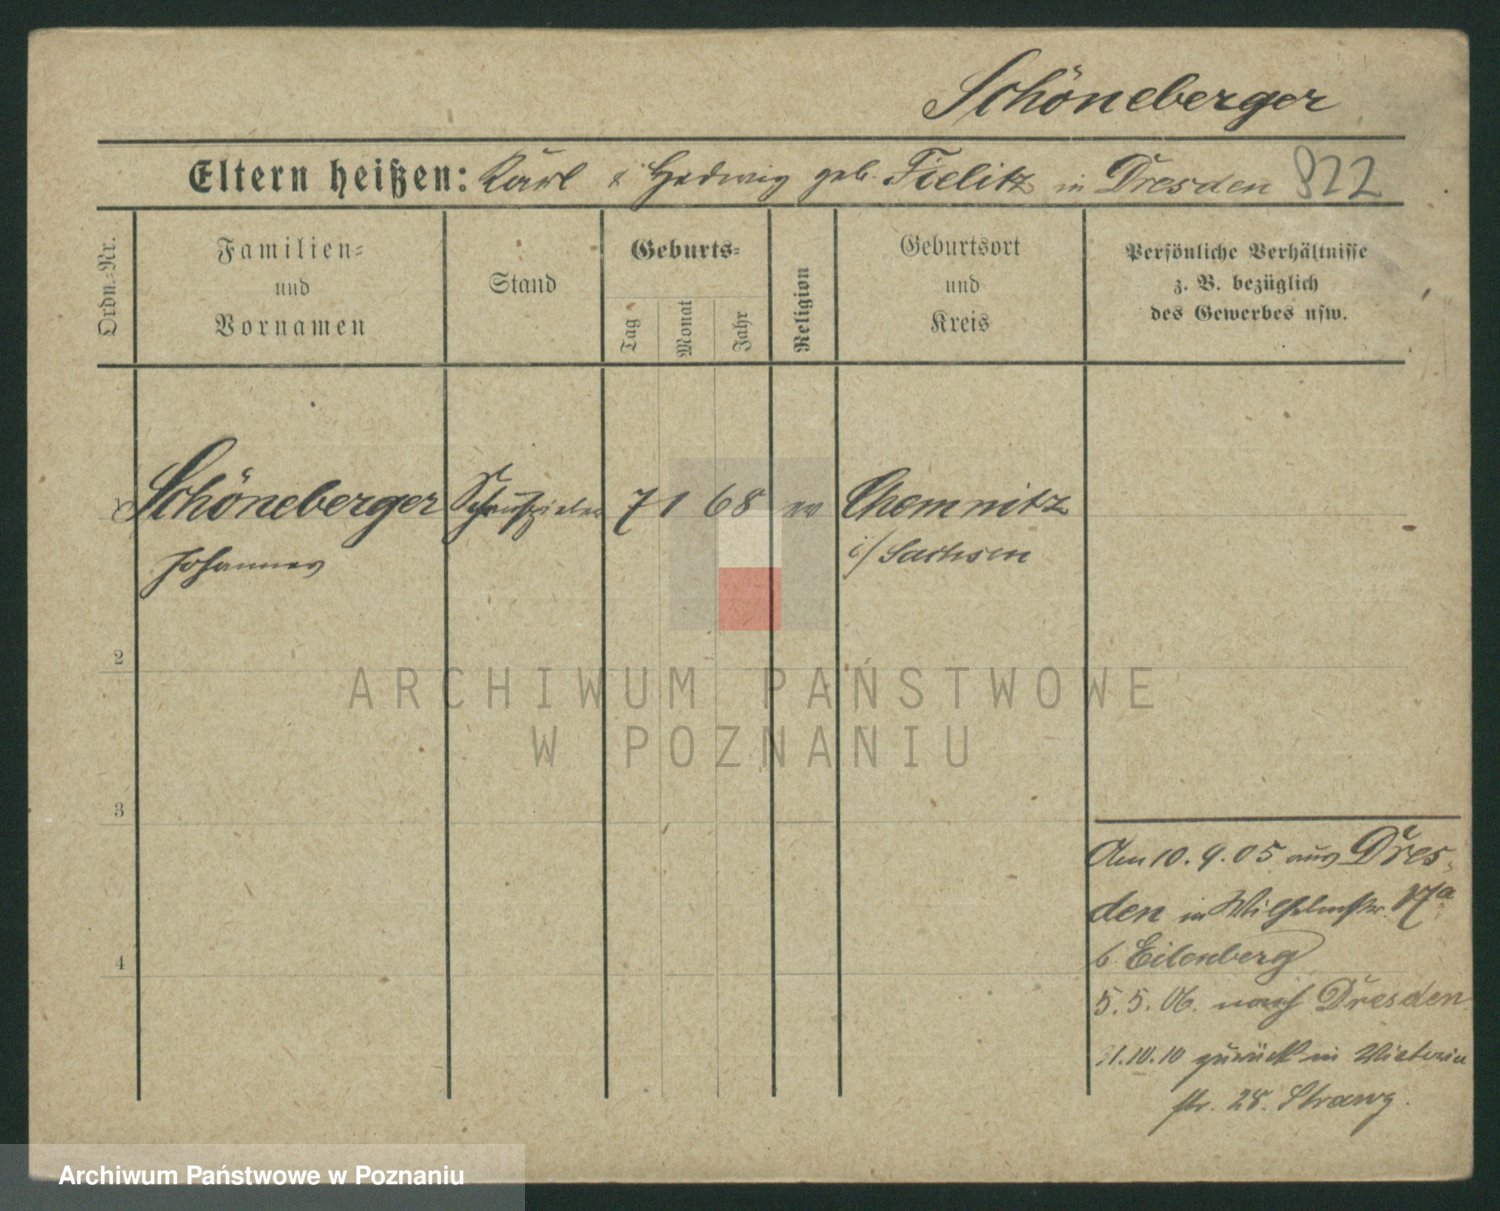 Schöneberger
Eltern heißen: Karl & Hedwig geb. Fielitz in Dresden 822
Ordn.-Nr.
Familien- und Vornamen
Stand
Geburts-
Tag
Monat
Jahr
Religion
Geburtsort und Kreis
Persönliche Verhältnisse
z. B. bezüglich
des Gewerbes usw.
Schöneberger Schauspieler 7 1 68 ev Chemnitz
Johannes i/ Sachsen
2
3
4
Am 10. 9. 05 aus Dres-
den in Wilhelmstr. 17a
b. Eilenberg
5. 5. 06. nach Dresden
31.10.10 zurück in Victoria
str. 28.
ARCHIWUM PAŃSTWOWE
W POZNANIU
Archiwum Państwowe w Poznaniu